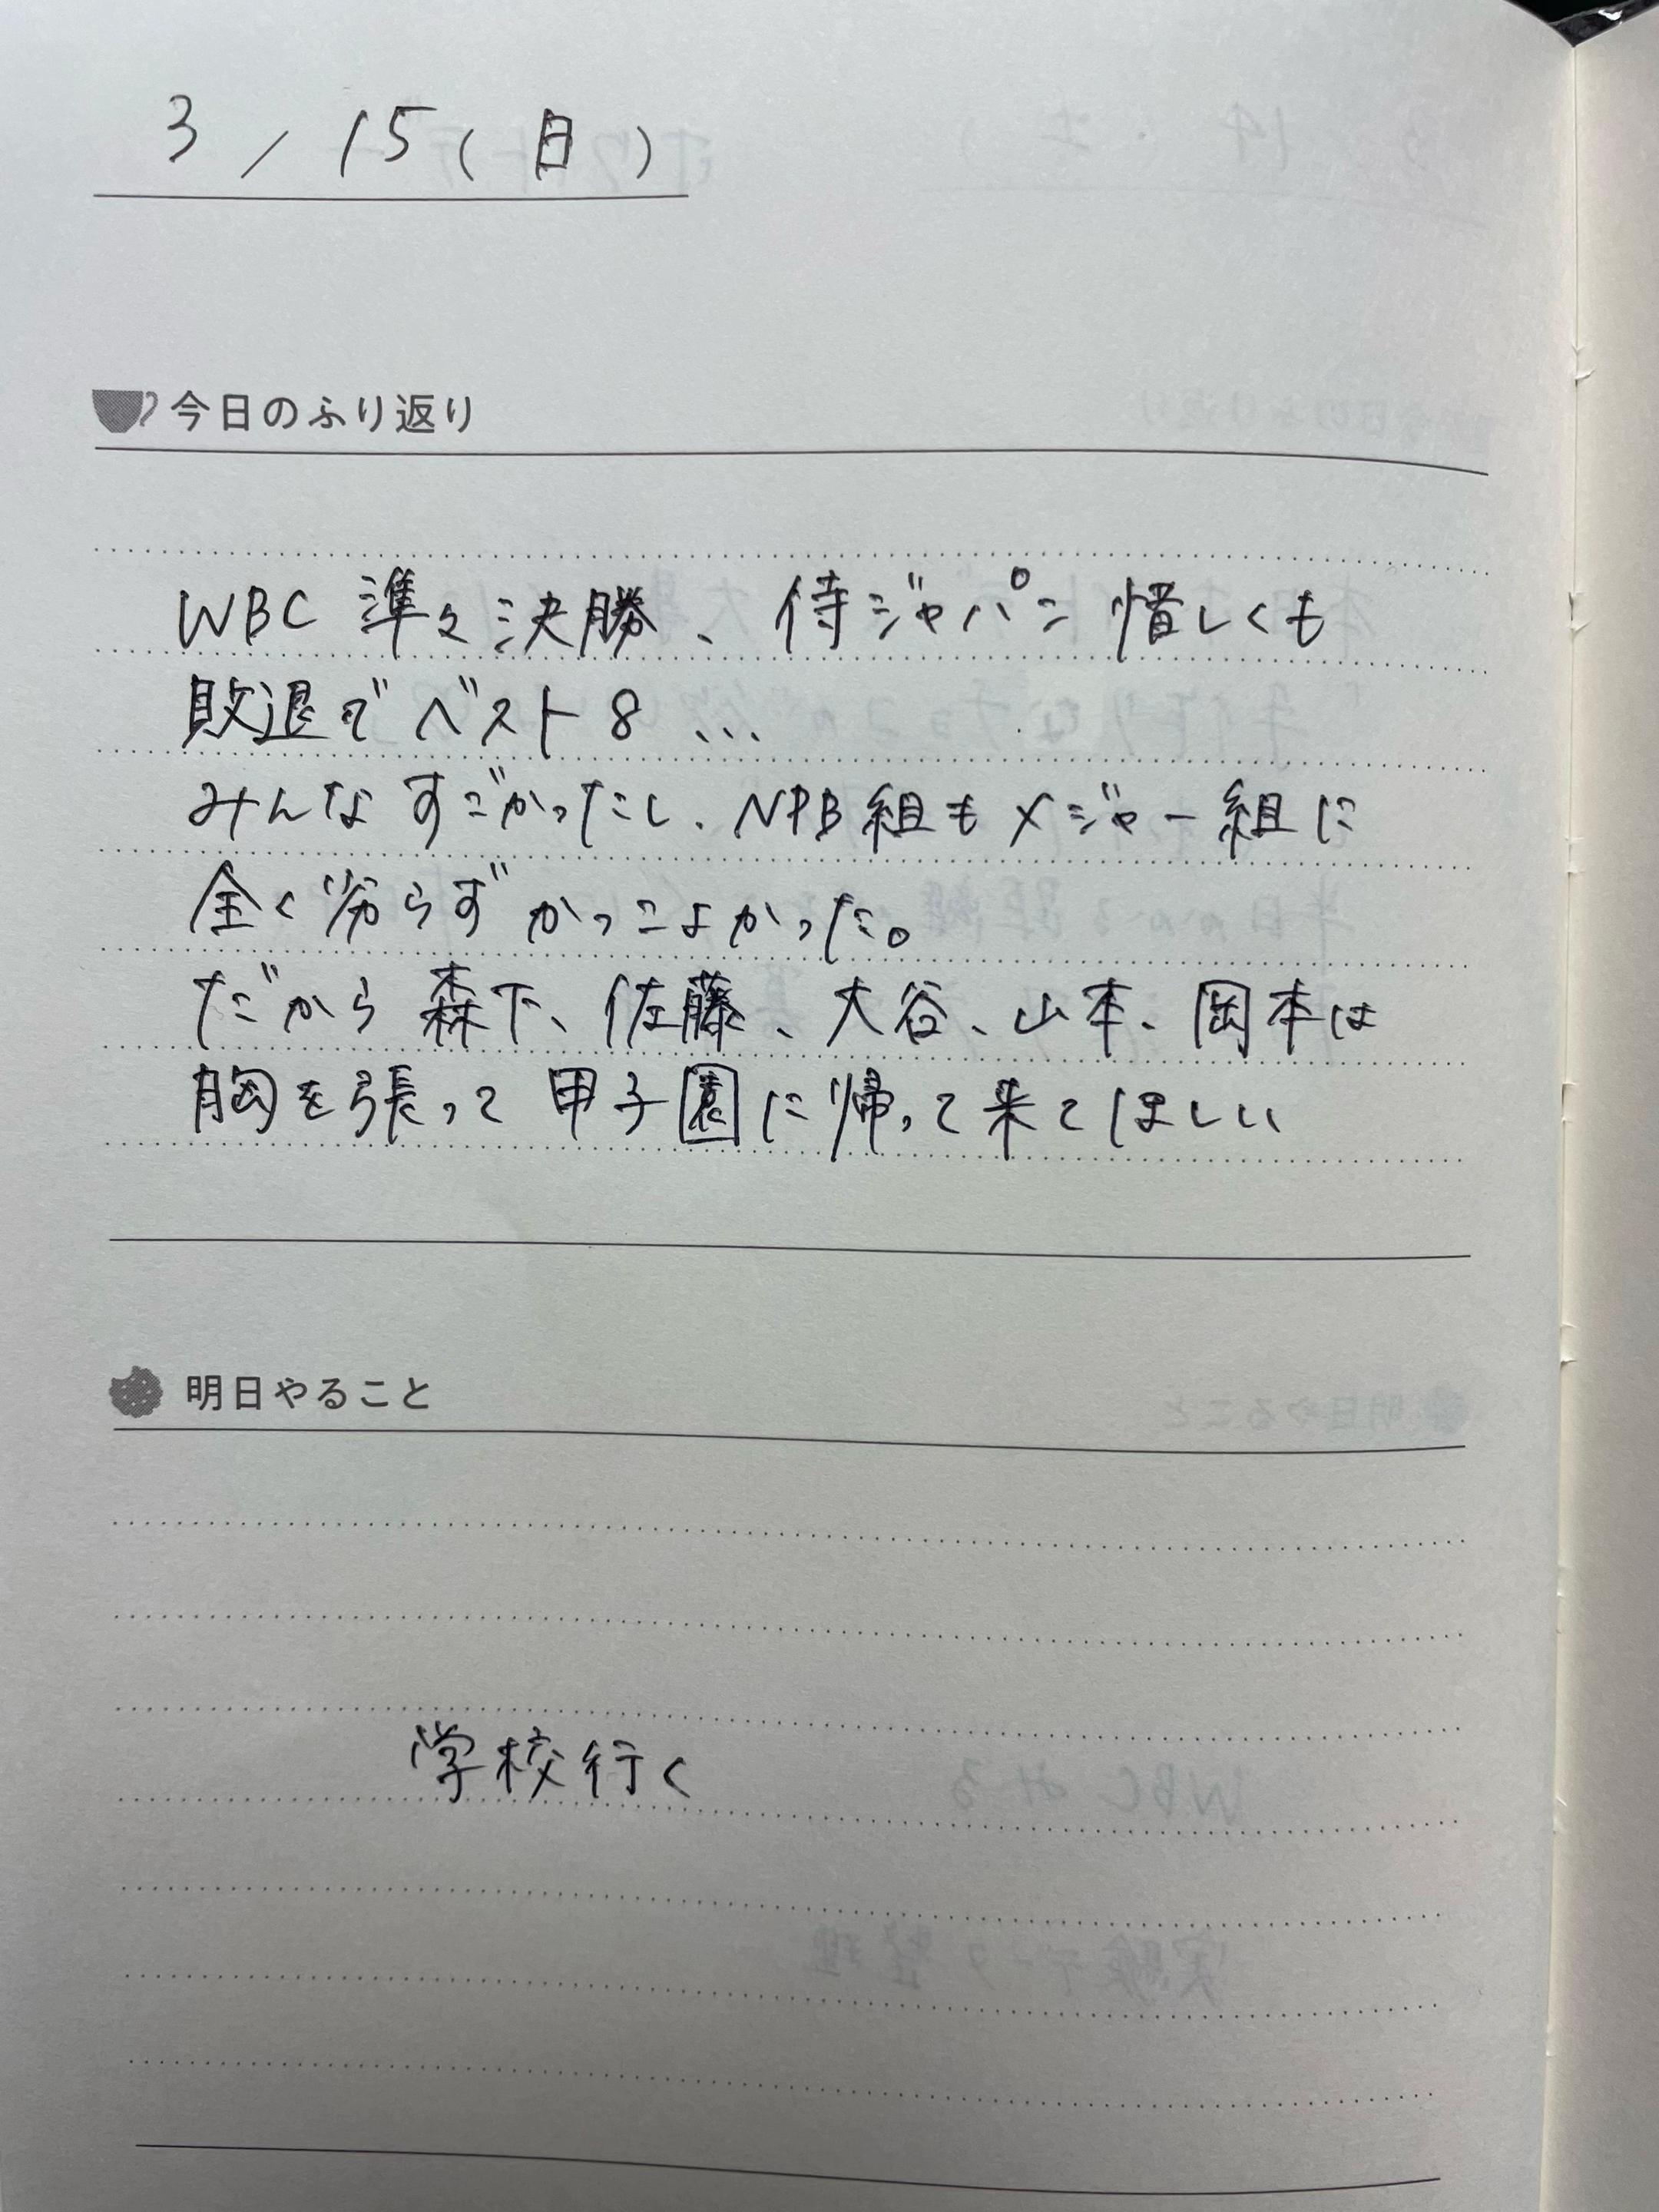 3/15(日)
今日のふり返り
WBC 準々決勝、侍ジャパン惜しくも
敗退でベスト8…
みんなすごかったし、NPB組もメジャー組に
全く劣らずかっこよかった。
だから森下、佐藤、大谷、山本、岡本は
胸を張って甲子園に帰って来てほしい
明日やること
学校行く